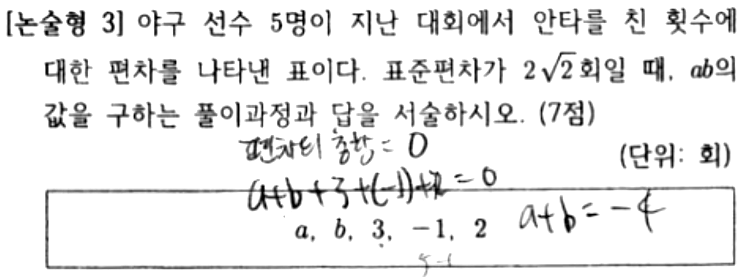 [논술형 3] 야구 선수 5명이 지난 대회에서 안타를 친 횟수에
대한 편차를 나타낸 표이다. 표준편차가 2√2회일 때, ab의
값을 구하는 풀이과정과 답을 서술하시오. (7점)
편차의 총합 = 0
(단위: 회)
a+b+3+(-1)+2=0
a, b, 3, -1, 2
a+b=-4